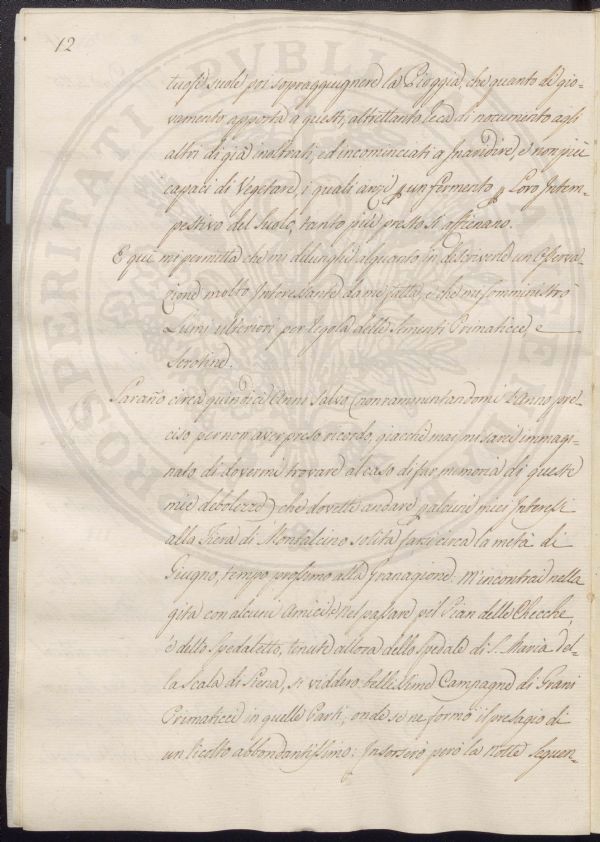 12
tuosi suole poi sopraggiugnere la Pioggia, che quanto di gio-
vamento apporta a questi, altrettanto reca di nocumento agli
altri di già inoltrati, ed incominciati a Inaridire, e non più
capaci di Vegetare, i quali anzi p un fermento, p Loro Intem-
pestivo del Suolo, tanto più presto si affienano.
E qui mi permetta che mi dilunghi alquanto in descrivere un Osserva-
zione molto Interessante da me fatta, e che mi somministrò
Lumi ulteriori per regola delle Sementi Primaticce, e
Serotine.
Saranno circa quindici Anni salvo (non rammentandomi l'Anno pre-
ciso per non aver preso ricordo, giacchè mai mi sarei immagi-
nato di dovermi trovare al caso di far memoria di queste
mie debolezze) che dovetti andare p alcuni miei Interessi
alla Fiera di Montalcino solita farsi circa la metà di
Giugno, tempo prossimo alla Granagione. M'incontrai nella
gita con alcuni Amici, e nel passare pel Pian delle Checche,
e dello Spedaletto, tenute allora dello Spedale di S. Maria del-
la Scala di Siena, si viddero bellissime Campagne di Grani
Primaticci in quelle Parti, onde se ne formò il presagio di
un ricolto abbondantissimo: Insorserò però la notte seguen-